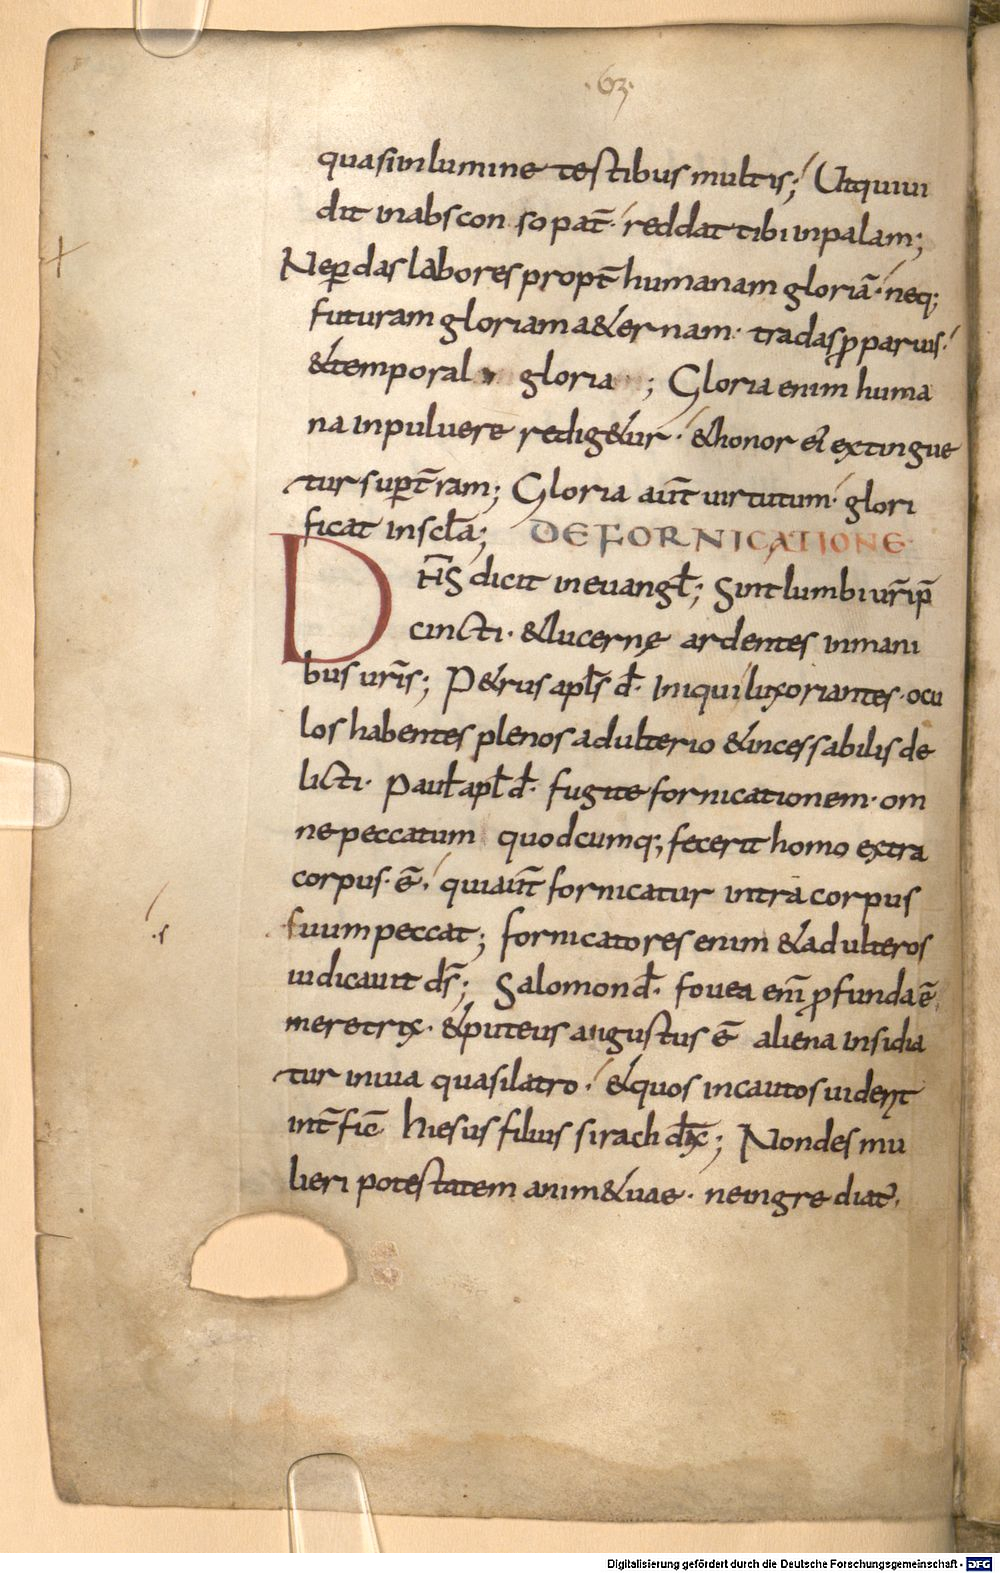 .63.
quasi in lumine testibus multis; Ut qui ui
dit in abscon so pat̄· reddat tibi in palam;
Ne ꝑdas labores propt̄ humanam gloriā· neq;
futuram gloriam a&ernam· tradas ꝓ paruis·
& temporal gloria ; Gloria enim huma
na in puluere redig&ur· & honor ei extingue
tur suꝑ t̄ram; Gloria aūt uirtutum· glori
ficat in scl̄a; DE FORNICATIONE
DN̄S dicit in euangl̄; Sint lumbi ur̄i p̄
cincti· & lucernę ardentes in mani
bus ur̄is; P&rus apl̄s d̄· Iniqui luxoriantes· ocu
los habentes plenos adulterio & incessabilis de
licti· Paul̄ apl̄ d̄· fugite fornicationem· om
ne peccatum quodcumq; fecerit homo extra
corpus· ē· qui aūt fornicatur intra corpus
suum peccat; fornicatores enim & adulteros
iudicauit ds̄; Salomon d̄· fouea enī ꝓfunda ē
meretrix· & puteus angustus ē aliena insidia
tur in uia quasi latro· & quos incautos uident
int̄ficē hiesus filius sirach dix̄; Non des mu
lieri potestatem anim& uae· ne ingrediat̄·
·s
Digitalisierung gefördert durch die Deutsche Forschungsgemeinschaft - DFG